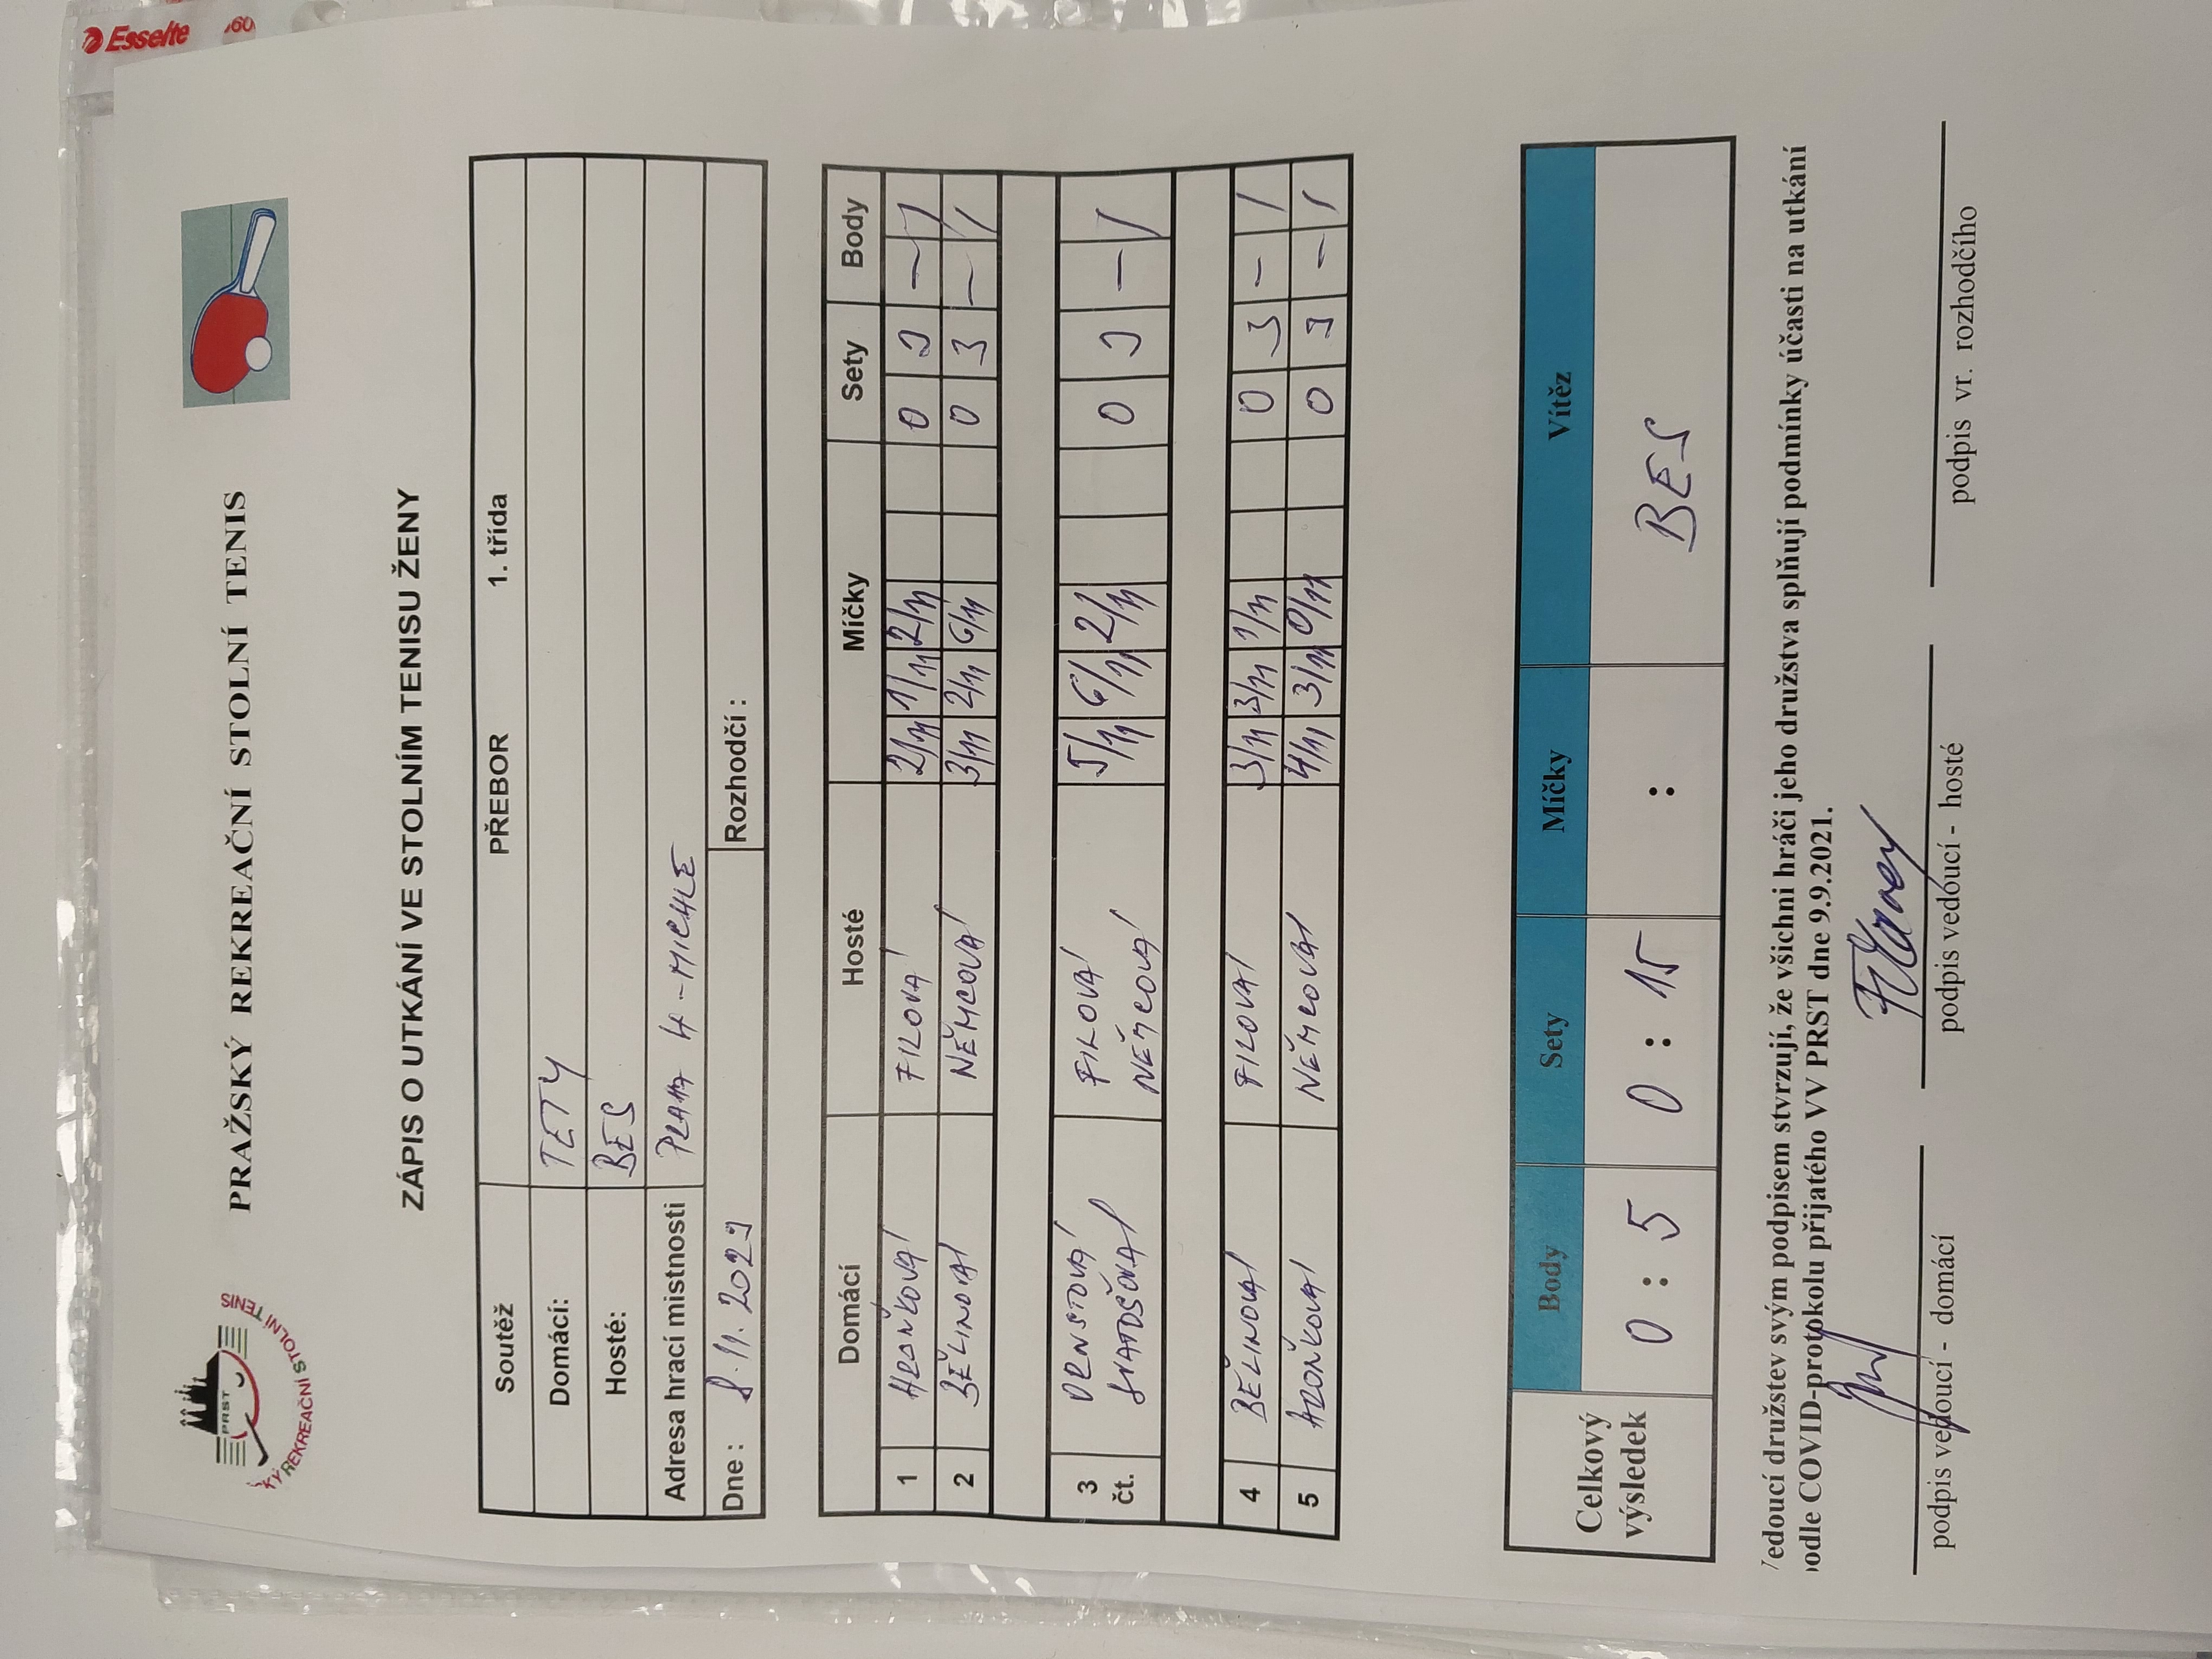 Esselte 60
PRAŽSKÝ REKREAČNÍ STOLNÍ TENIS
PRST
KÝ REKREAČNÍ STOLNÍ TENIS
ZÁPIS O UTKÁNÍ VE STOLNÍM TENISU ŽENY
Soutěž PŘEBOR 1. třída
Domácí: TETY
Hosté: BES
Adresa hrací mistnosti PRAHA 4 - MICHLE
Dne : 8.11.2023 Rozhodčí :
Domácí Hosté Míčky Sety Body
1 HRONKOVÁ FILOVÁ 2/11 1/11 2/11 0 3 - 1
2 BĚLINOVÁ NĚMCOVÁ 3/11 2/11 6/11 0 3 - 1
3 FILOVÁ 5/11 6/11 2/11 0 3 - 1
čt. NĚMCOVÁ
4 BĚLINOVÁ FILOVÁ 3/11 3/11 1/11 0 3 - 1
5 NĚMCOVÁ 4/11 3/11 0/11 0 3 - 1
Celkový výsledek Body Sety Míčky Vítěz
0 : 5 0 : 15 : BES
edoucí družstev svým podpisem stvrzují, že všichni hráči jeho družstva splňují podmínky účasti na utkání
odle COVID-protokolu přijatého VV PRST dne 9.9.2021.
podpis vedoucí - domácí podpis vedoucí - hosté podpis vr. rozhodčího